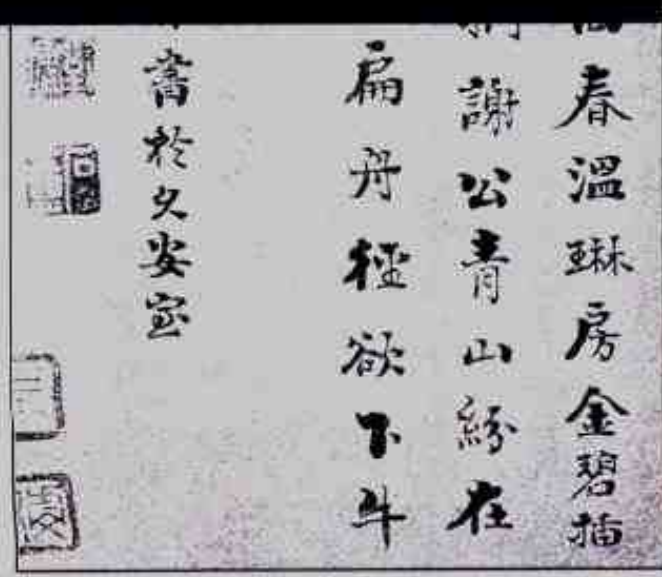 春溫琳房金碧插
謝公青山紛在
扁舟徑欲下斗
書於久安室